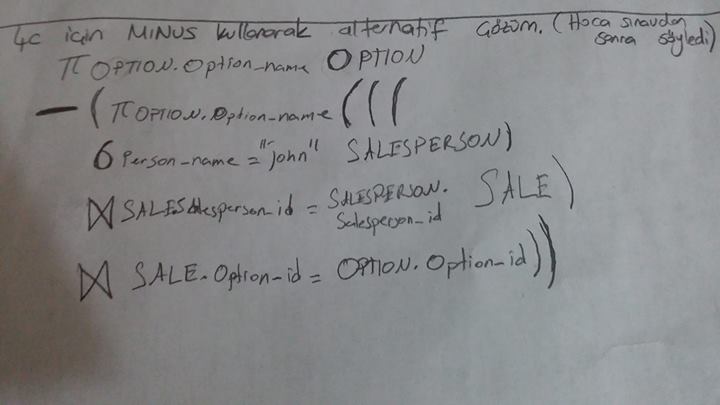 4c için MINUS kullanarak alternatif çözüm. (Hoca sınavdan sonra söyledi)
π OPTION.Option_name OPTION
— ( π OPTION.Option_name (((
σ Person_name = "john" SALESPERSON)
⋈ SALE.Salesperson_id = SALESPERSON.Salesperson_id SALE)
⋈ SALE.Option_id = OPTION.Option_id))